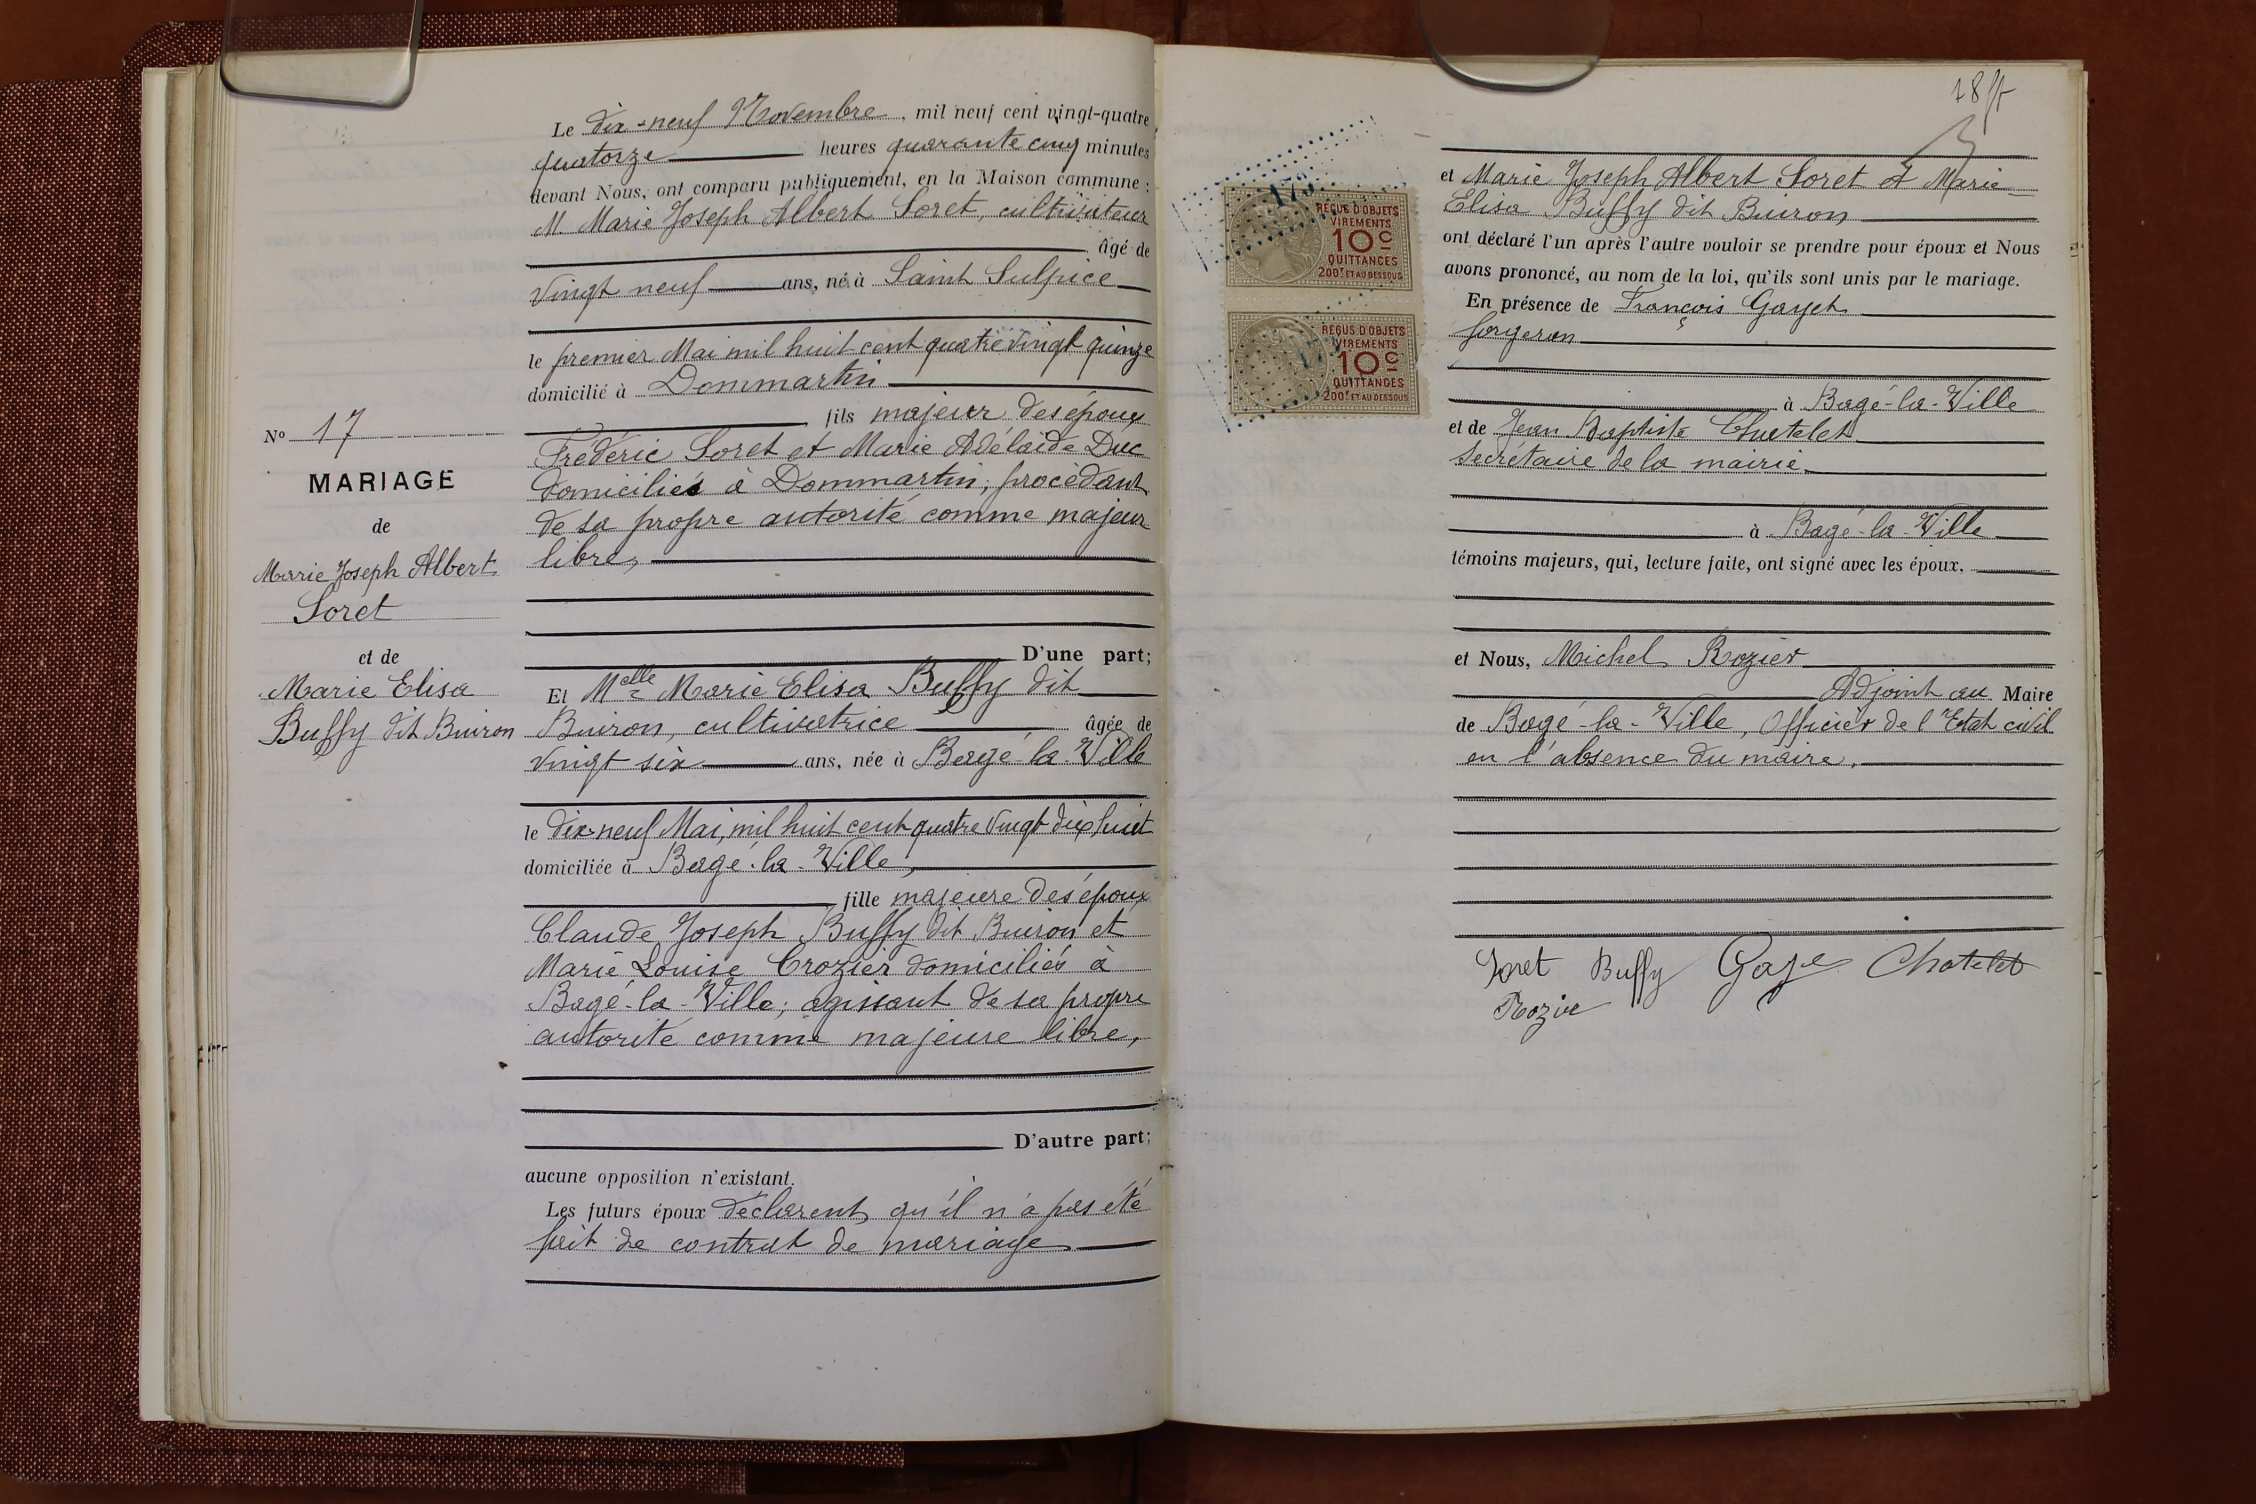 N° 17
MARIAGE
de
Marie Joseph Albert
Soret
et de
Marie Elisa
Buffy dit Buiron
Le dix-neuf Novembre, mil neuf cent vingt-quatre
quatorze heures quarante cinq minutes
devant Nous, ont comparu publiquement, en la Maison commune :
M. Marie Joseph Albert Soret, cultivateur
âgé de
vingt neuf ans, né à Saint Sulpice
le premier Mai mil huit cent quatre vingt quinze
domicilié à Dommartin
fils majeur des époux
Frédéric Soret et Marie Adélaïde Duc
domiciliés à Dommartin; procédant
de sa propre autorité comme majeur
libre,
D'une part;
Et Melle Marie Elisa Buffy dit
Buiron, cultivatrice âgée de
vingt six ans, née à Bagé-la-Ville
le dix-neuf Mai, mil huit cent quatre vingt dix huit
domiciliée à Bagé-la-Ville,
fille majeure des époux
Claude Joseph Buffy dit Buiron et
Marie Louise Crozier domiciliés à
Bagé-la-Ville; agissant de sa propre
autorité comme majeure libre,
D'autre part;
aucune opposition n'existant.
Les futurs époux déclarent qu'il n'a pas été
fait de contrat de mariage
REÇUS D'OBJETS
VIREMENTS
10c
QUITTANCES
200f ET AU DESSOUS
REÇUS D'OBJETS
VIREMENTS
10c
QUITTANCES
200f ET AU DESSOUS
et Marie Joseph Albert Soret et Marie
Elisa Buffy dit Buiron
ont déclaré l'un après l'autre vouloir se prendre pour époux et Nous
avons prononcé, au nom de la loi, qu'ils sont unis par le mariage.
En présence de François Gayet
forgeron
à Bagé-la-Ville
et de Jean Baptiste Chatelet
Secrétaire de la mairie
à Bagé-la-Ville
témoins majeurs, qui, lecture faite, ont signé avec les époux.
et Nous, Michel Rozier
Adjoint au Maire
de Bagé-la-Ville, Officier de l'Etat civil
en l'absence du maire.
Soret Buffy Gaye Chatelet
Rozier